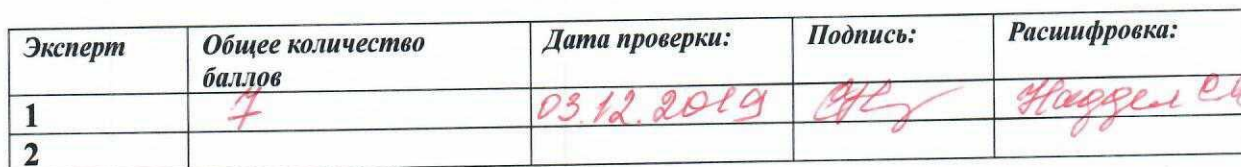 Эксперт Общее количество баллов Дата проверки: Подпись: Расшифровка:
1 7 03.12.2019
2